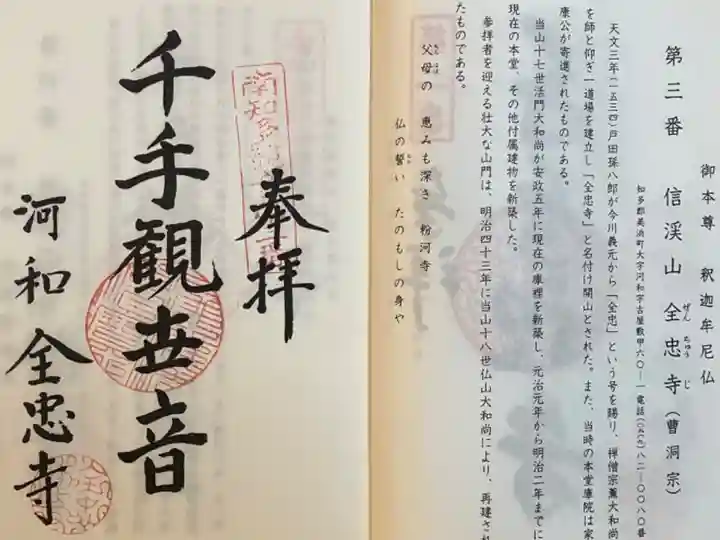 御本尊　釈迦牟尼仏
第三番　信渓山　全忠寺（曹洞宗）
ぜんちゅうじ
知多郡美浜町大字河和字古屋敷甲六〇―一 電話（〇五六九）八二―〇〇八〇番
天文三年（一五三四）戸田孫八郎が今川義元から「全忠」という号を賜り、禅僧宗薫大和尚
を師と仰ぎ一道場を建立し「全忠寺」と名付け開山とされた。また、当時の本堂庫院は家
康公が寄進されたものである。
当山十七世活門大和尚が安政五年に現在の庫裡を新築し、元治元年から明治二年までに
現在の本堂、その他付属建物を新築した。
参拝者を迎える壮大な山門は、明治四十三年に当山十八世仏山大和尚により、再建され
たものである。
父母の　恵みも深き　粉河寺
ちちはは
仏の誓い　たのもしの身や
奉拝
南知多
千手観世音
河和　全忠寺